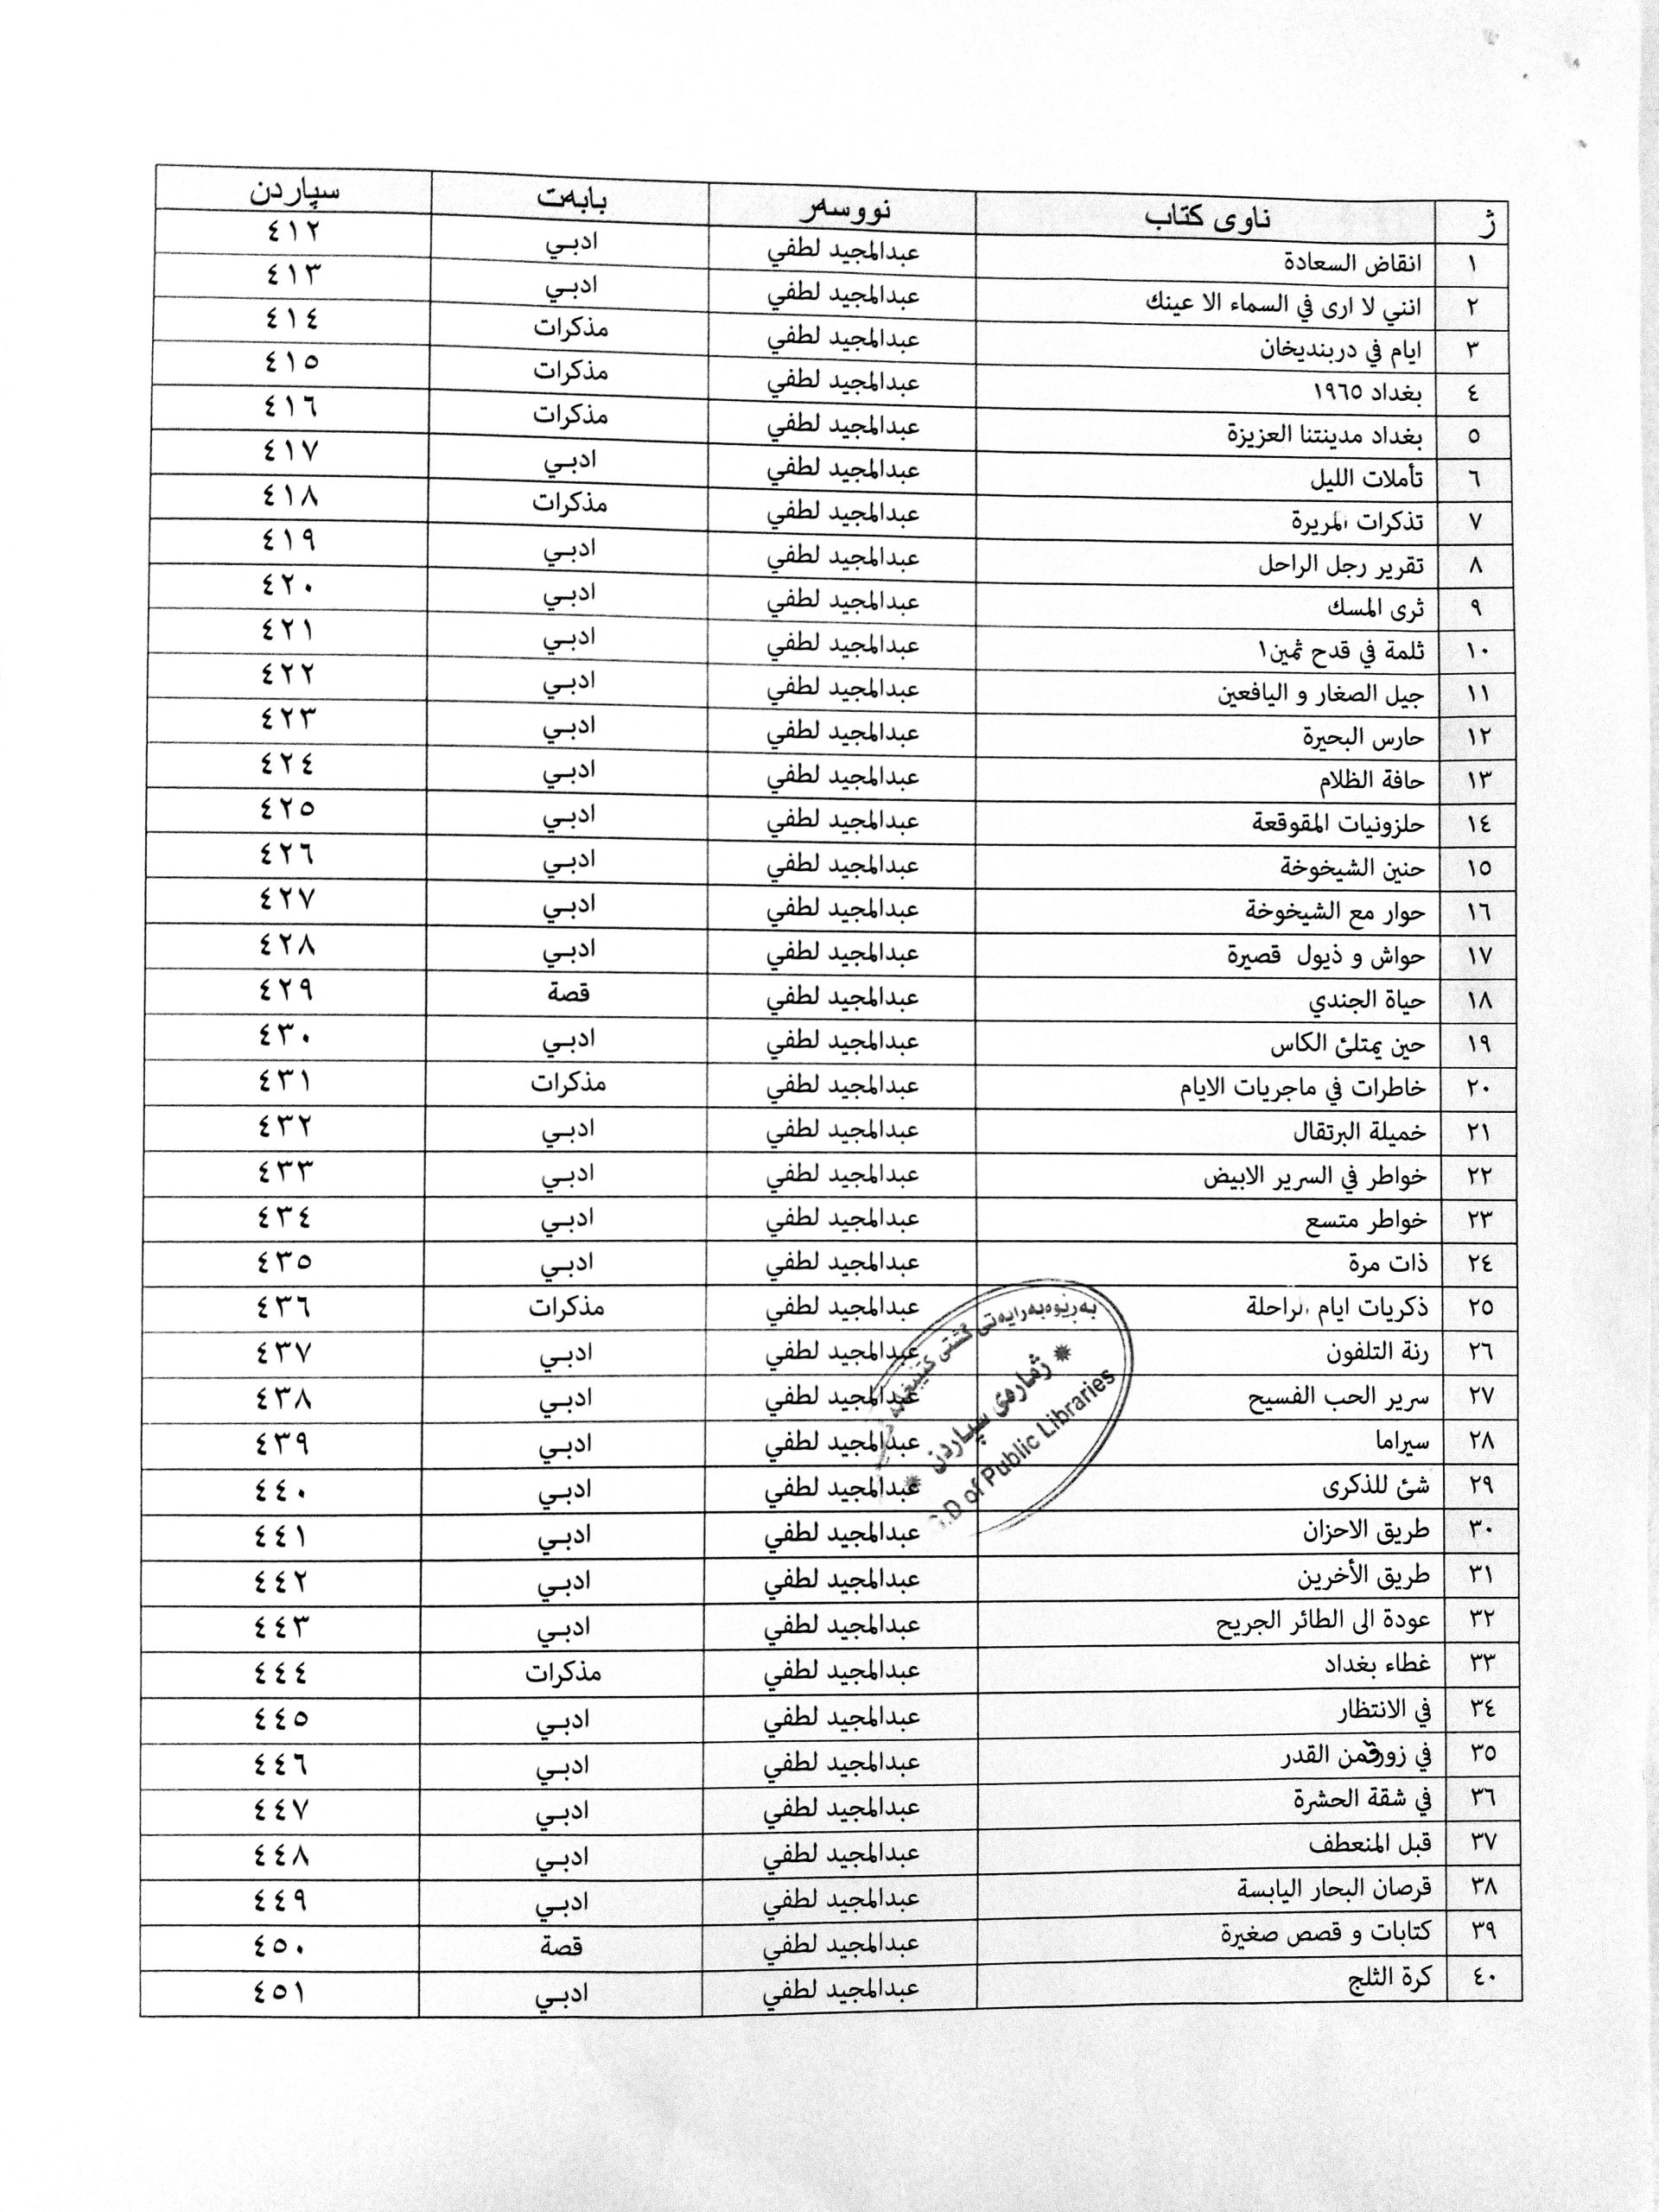 ژ ناوی کتاب نووسەر بابەت سپاردن
١ انقاض السعادة عبدالمجيد لطفي ادبي ٤١٢
٢ انني لا ارى في السماء الا عينك عبدالمجيد لطفي ادبي ٤١٣
٣ ايام في دربنديخان عبدالمجيد لطفي مذكرات ٤١٤
٤ بغداد ١٩٦٥ عبدالمجيد لطفي مذكرات ٤١٥
٥ بغداد مدينتنا العزيزة عبدالمجيد لطفي مذكرات ٤١٦
٦ تأملات الليل عبدالمجيد لطفي ادبي ٤١٧
٧ تذكرات المريرة عبدالمجيد لطفي مذكرات ٤١٨
٨ تقرير رجل الراحل عبدالمجيد لطفي ادبي ٤١٩
٩ ثرى المسك عبدالمجيد لطفي ادبي ٤٢٠
١٠ ثلمة في قدح ثمين١ عبدالمجيد لطفي ادبي ٤٢١
١١ جيل الصغار و اليافعين عبدالمجيد لطفي ادبي ٤٢٢
١٢ حارس البحيرة عبدالمجيد لطفي ادبي ٤٢٣
١٣ حافة الظلام عبدالمجيد لطفي ادبي ٤٢٤
١٤ حلزونيات المقوقعة عبدالمجيد لطفي ادبي ٤٢٥
١٥ حنين الشيخوخة عبدالمجيد لطفي ادبي ٤٢٦
١٦ حوار مع الشيخوخة عبدالمجيد لطفي ادبي ٤٢٧
١٧ حواش و ذيول قصيرة عبدالمجيد لطفي ادبي ٤٢٨
١٨ حياة الجندي عبدالمجيد لطفي قصة ٤٢٩
١٩ حين يمتلئ الكاس عبدالمجيد لطفي ادبي ٤٣٠
٢٠ خاطرات في ماجريات الايام عبدالمجيد لطفي مذكرات ٤٣١
٢١ خميلة البرتقال عبدالمجيد لطفي ادبي ٤٣٢
٢٢ خواطر في السرير الابيض عبدالمجيد لطفي ادبي ٤٣٣
٢٣ خواطر متسع عبدالمجيد لطفي ادبي ٤٣٤
٢٤ ذات مرة عبدالمجيد لطفي ادبي ٤٣٥
٢٥ ذكريات ايام الراحلة عبدالمجيد لطفي مذكرات ٤٣٦
٢٦ رنة التلفون عبدالمجيد لطفي ادبي ٤٣٧
٢٧ سرير الحب الفسيح عبدالمجيد لطفي ادبي ٤٣٨
٢٨ سيراما عبدالمجيد لطفي ادبي ٤٣٩
٢٩ شئ للذكرى عبدالمجيد لطفي ادبي ٤٤٠
٣٠ طريق الاحزان عبدالمجيد لطفي ادبي ٤٤١
٣١ طريق الأخرين عبدالمجيد لطفي ادبي ٤٤٢
٣٢ عودة الى الطائر الجريح عبدالمجيد لطفي ادبي ٤٤٣
٣٣ غطاء بغداد عبدالمجيد لطفي مذكرات ٤٤٤
٣٤ في الانتظار عبدالمجيد لطفي ادبي ٤٤٥
٣٥ في زورقمن القدر عبدالمجيد لطفي ادبي ٤٤٦
٣٦ في شقة الحشرة عبدالمجيد لطفي ادبي ٤٤٧
٣٧ قبل المنعطف عبدالمجيد لطفي ادبي ٤٤٨
٣٨ قرصان البحار اليابسة عبدالمجيد لطفي ادبي ٤٤٩
٣٩ كتابات و قصص صغيرة عبدالمجيد لطفي قصة ٤٥٠
٤٠ كرة الثلج عبدالمجيد لطفي ادبي ٤٥١
بەڕێوەبەرایەتی گشتی
ژمارەی سپاردن
.D of Public Libraries